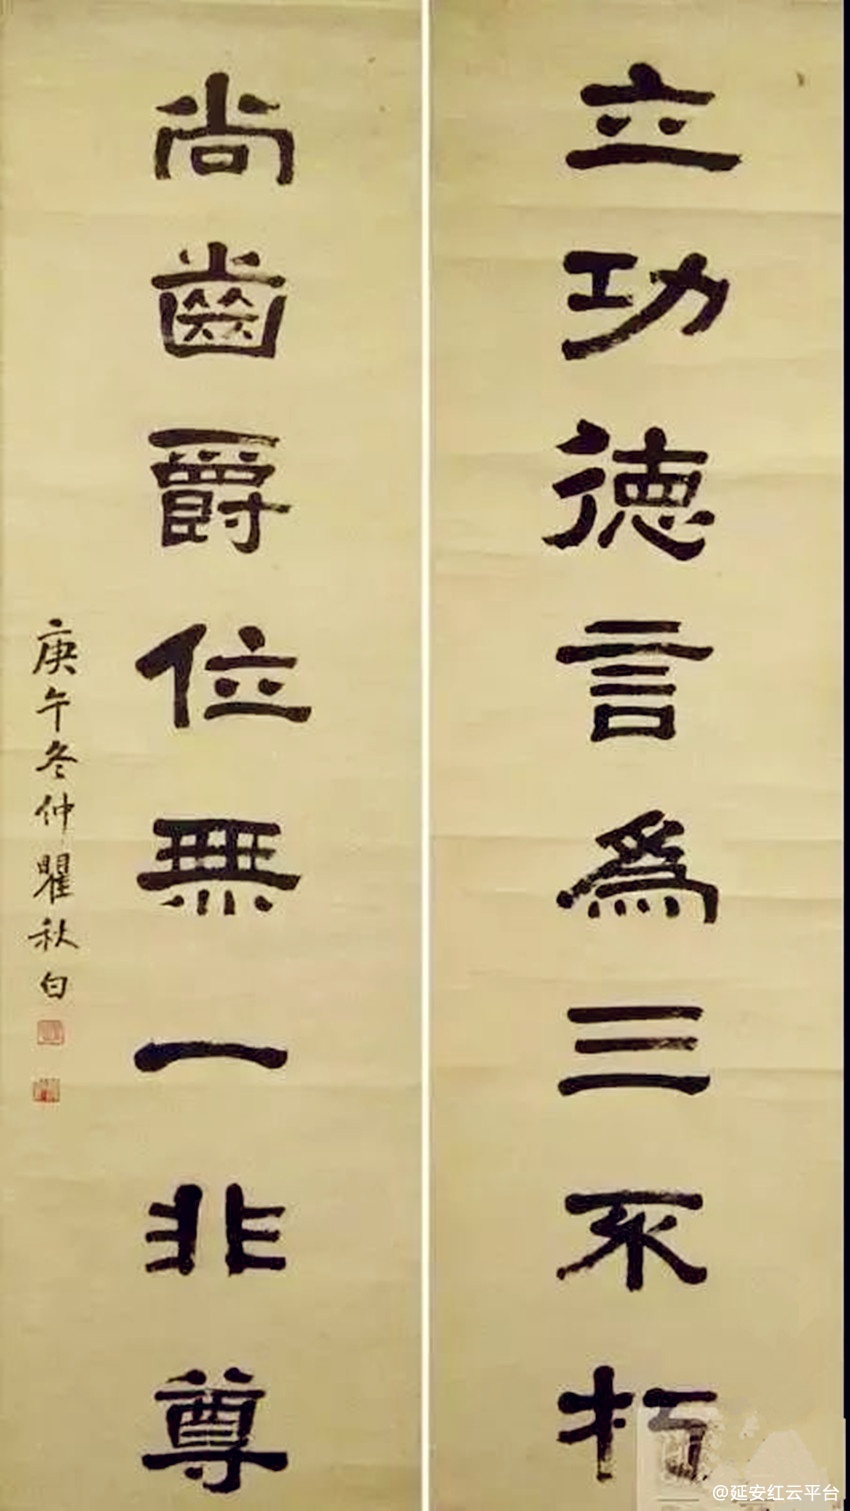 立功德言為三不朽
尚齒爵位無一非尊
庚午冬仲瞿秋白
@延安红云平台